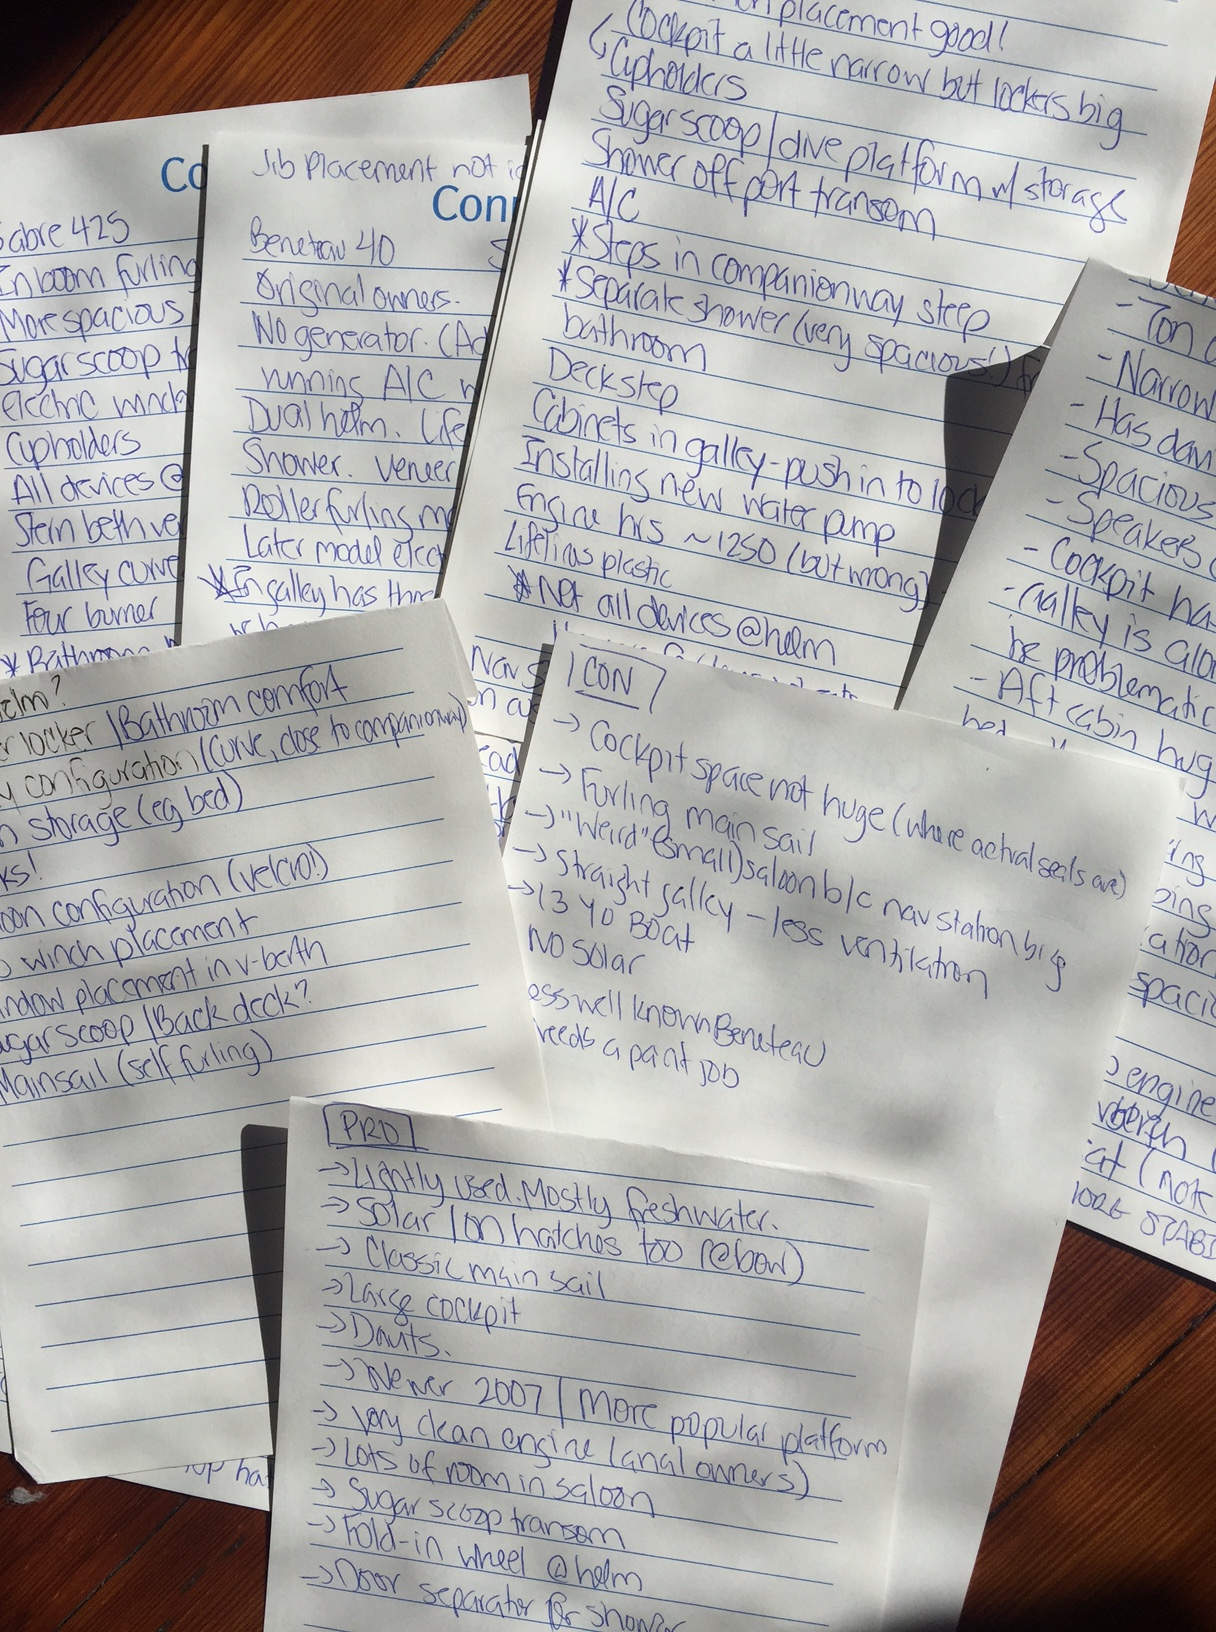 Co
Sabre 425
In boom furling
More spacious
Sugar scoop tr
electric winch
Cupholders
All devices @
Stern
Galley curve
Four burner
* Bathroom
Jib placement not
Conn
Beneteau 40
Original owners.
No generator. (Ad
running A/C
Dual helm. Life
Shower. Veneer
Roller furling
Later model elect
* In galley has thre
placement good!
Cockpit a little narrow but lockers big
Cupholders
Sugar scoop/dive platform w/ storage
Shower off port transom
A/C
* Steps in companionway steep
* Separate shower (very spacious!)
bathroom
Deck step
Cabinets in galley - push in to lock
Installing new water pump
Engine hrs ~1250 (but wrong)
Lifelines plastic
* Not all devices @ helm
Nav s
- Ton
- Narrow
- Has davi
- Spacious
- Speakers
- Cockpit ha
- Galley is alo
be problematic
- Aft cabin hug
spacio
engine
(not
helm?
locker/Bathroom comfort
configuration (curve, close to companionway)
storage (eg bed)
ks!
configuration (velcro!)
winch placement
window placement in v-berth
Sugar scoop/Back deck?
Mainsail (self furling)
CON
→ Cockpit space not huge (where actual seats are)
→ Furling main sail
→ "Weird" (small) saloon b/c nav station big
→ Straight galley - less ventilation
→ 13 YO BOAT
NO SOLAR
ess well known Beneteau
needs a paint job
PRO
→ Lightly used. Mostly freshwater.
→ Solar / on hatches too (@bow)
→ Classic main sail
→ Large cockpit
→ Davits.
→ Newer 2007 / More popular platform
→ Very clean engine (anal owners)
→ Lots of room in saloon
→ Sugar scoop transom
→ Fold-in wheel @ helm
→ Door separator for shower